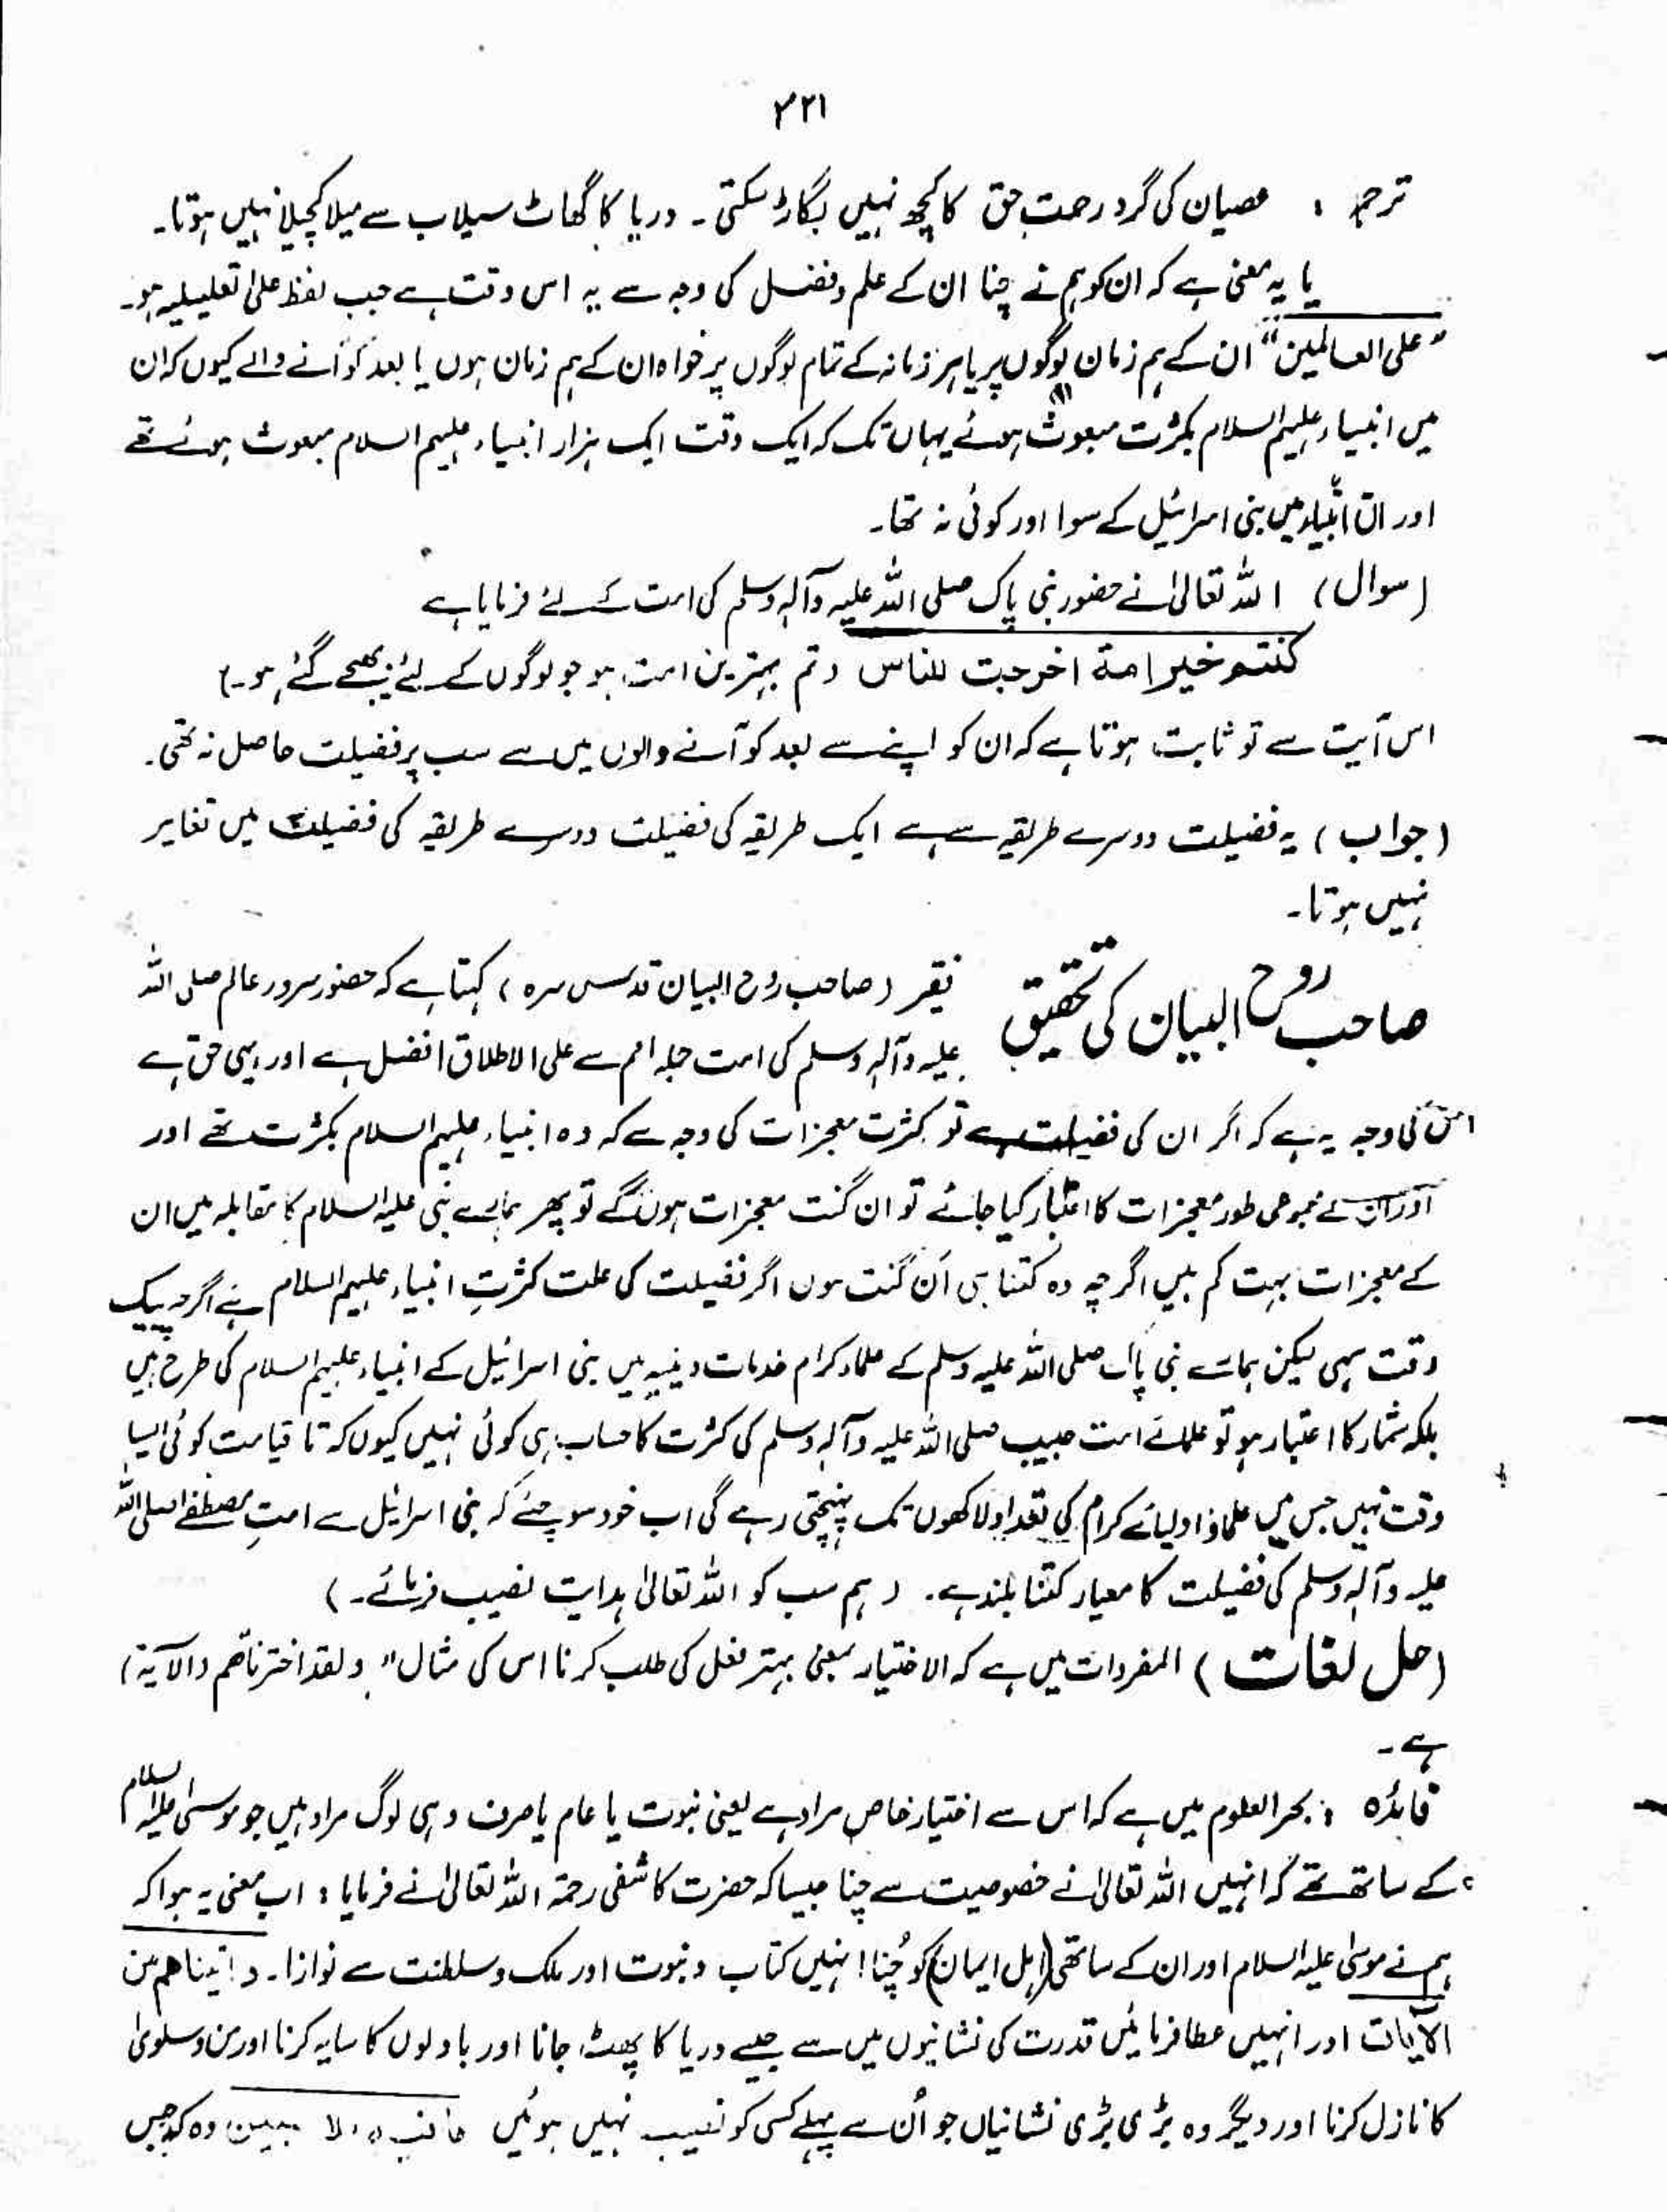 ۲۲۱
ترجمہ : عصیان کی گرد رحمتِ حق کا کچھ نہیں بگاڑ سکتی۔ دریا کا گھاٹ سیلاب سے میلا کچیلا نہیں ہوتا۔
یا یہ معنی ہے کہ ان کو ہم نے چنا ان کے علم و فضل کی وجہ سے یہ اس وقت ہے جب لفظ علیٰ تعلیلیہ ہو۔
"علی العالمین" ان کے ہم زمان لوگوں پر یا ہر زمانہ کے تمام لوگوں پر خواہ ان کے ہم زمان ہوں یا بعد کو آنے والے کیوں کہ ان
میں انبیاء علیہم السلام بکثرت مبعوث ہوئے یہاں تک کہ ایک وقت ایک ہزار انبیاء علیہم السلام مبعوث ہوئے تھے
اور ان انبیاء میں بنی اسرائیل کے سوا اور کوئی نہ تھا۔
(سوال) اللہ تعالیٰ نے حضور نبی پاک صلی اللہ علیہ وآلہٖ وسلم کی امت کے لئے فرمایا ہے
کنتم خیر امة اخرجت للناس (تم بہترین امت ہو جو لوگوں کے لئے بھیجے گئے ہو۔)
اس آیت سے تو ثابت ہوتا ہے کہ ان کو اپنے سے بعد کو آنے والوں میں سے سب پر فضیلت حاصل نہ تھی۔
(جواب) یہ فضیلت دوسرے طریقہ سے ہے ایک طریقہ کی فضیلت دوسرے طریقہ کی فضیلت میں تغایر
نہیں ہوتا۔
صاحب روح البیان کی تحقیق فقیر (صاحب روح البیان قدس سرہ) کہتا ہے کہ حضور سرور عالم صلی اللہ
علیہ وآلہٖ وسلم کی امت جملہ امم سے علی الاطلاق افضل ہے اور یہی حق ہے
اس کی وجہ یہ ہے کہ اگر ان کی فضیلت ہے تو کثرت معجزات کی وجہ سے کہ وہ انبیاء علیہم السلام بکثرت تھے اور
اور ان کے مجموعی طور معجزات کا اعتبار کیا جائے تو ان گنت معجزات ہوں گے تو پھر ہمارے نبی علیہ السلام کا مقابلہ میں ان
کے معجزات بہت کم ہیں اگرچہ وہ کتنا ہی اَن گنت ہوں اگر فضیلت کی علت کثرتِ انبیاء علیہم السلام ہے اگرچہ بیک
وقت سہی لیکن ہمارے نبی پاک صلی اللہ علیہ وسلم کے علماء کرام خدمات دینیہ میں بنی اسرائیل کے انبیاء علیہم السلام کی طرح ہیں
بلکہ شمار کا اعتبار ہو تو علمائے امت حبیب صلی اللہ علیہ وآلہٖ وسلم کی کثرت کا حساب ہی کوئی نہیں کیوں کہ تا قیامت کوئی ایسا
وقت نہیں جس میں علماء و اولیائے کرام کی تعداد لاکھوں تک پہنچتی رہے گی اب خود سوچئے کہ بنی اسرائیل سے امتِ مصطفےٰ صلی اللہ
علیہ وآلہٖ وسلم کی فضیلت کا معیار کتنا بلند ہے۔ (ہم سب کو اللہ تعالیٰ ہدایت نصیب فرمائے۔)
(حل لغات) المفردات میں ہے کہ الاختیار بمعنی بہتر فعل کی طلب کرنا اس کی مثال" ولقد اخترناھم (الآیۃ)
ہے۔
فائدہ : بحر العلوم میں ہے کہ اس سے اختیار خاص مراد ہے یعنی نبوت یا عام یا صرف وہی لوگ مراد ہیں جو موسیٰ علیہ السلام
کے ساتھ تھے کہ انہیں اللہ تعالیٰ نے خصوصیت سے چنا جیسا کہ حضرت کاشفی رحمۃ اللہ تعالیٰ نے فرمایا : اب معنی یہ ہوا کہ
ہم نے موسیٰ علیہ السلام اور ان کے ساتھی (اہل ایمان) کو چُنا انہیں کتاب و نبوت اور ملک و سلطنت سے نوازا۔ و اٰتیناھم من
الآیات اور انہیں عطا فرمائیں قدرت کی نشانیوں میں سے جیسے دریا کا پھٹ جانا اور بادلوں کا سایہ کرنا اور من و سلویٰ
کا نازل کرنا اور دیگر وہ بڑی بڑی نشانیاں جو اُن سے پہلے کسی کو نصیب نہیں ہوئیں مبین وہ کہ جس